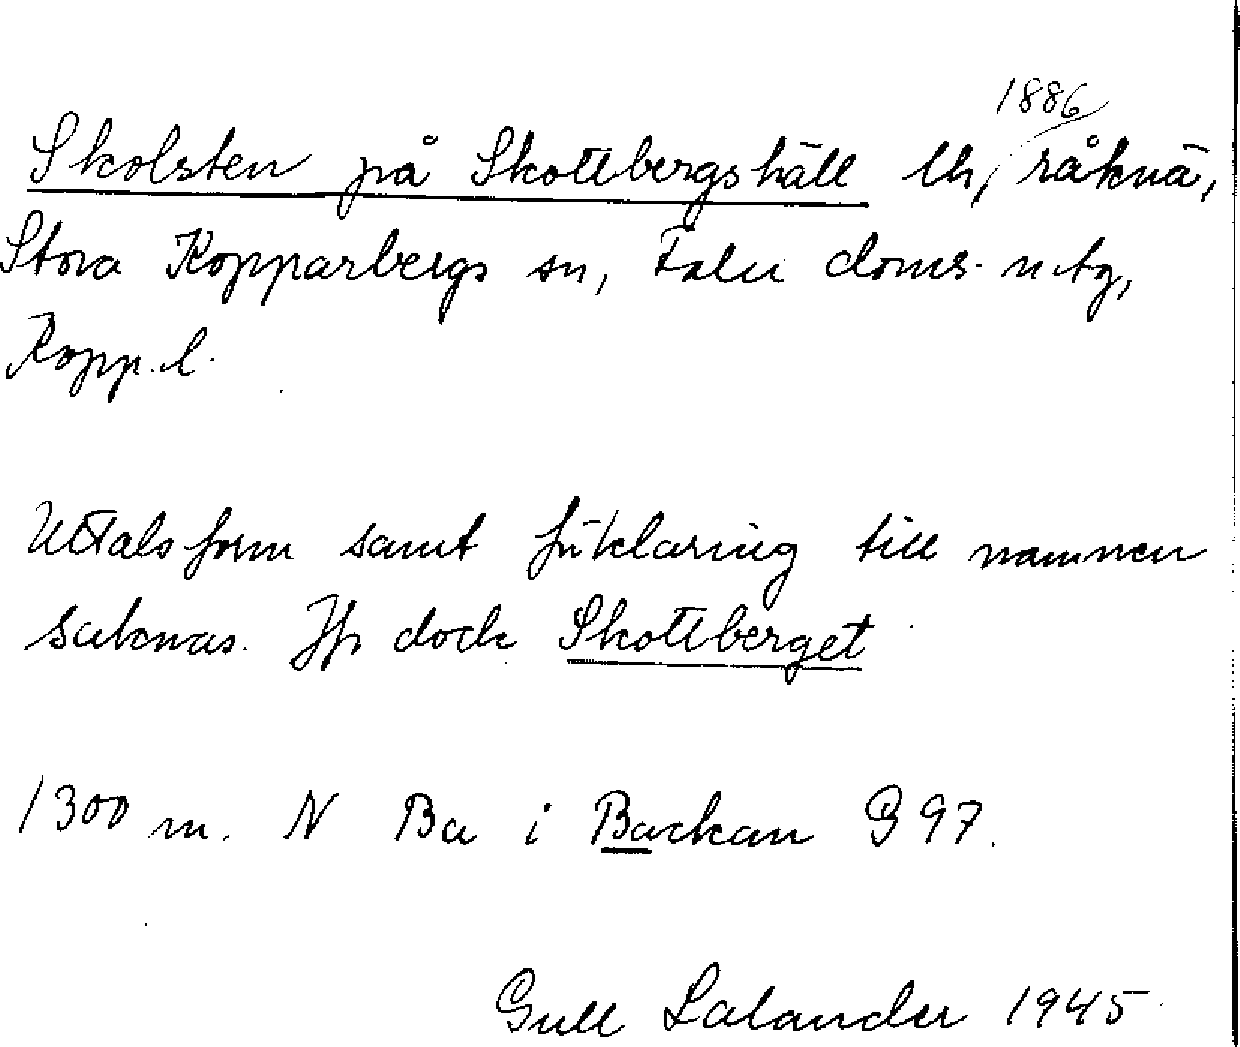 1886
Skolsten på Skottbergshäll lh, råknä,
Stora Kopparbergs sn, Falu doms.
Kopp. l.
Uttalsform samt förklaring till namnen
saknas. Jfr dock Skottberget
1300 m. N Ba i Backan B 97.
Gull Lalander 1945